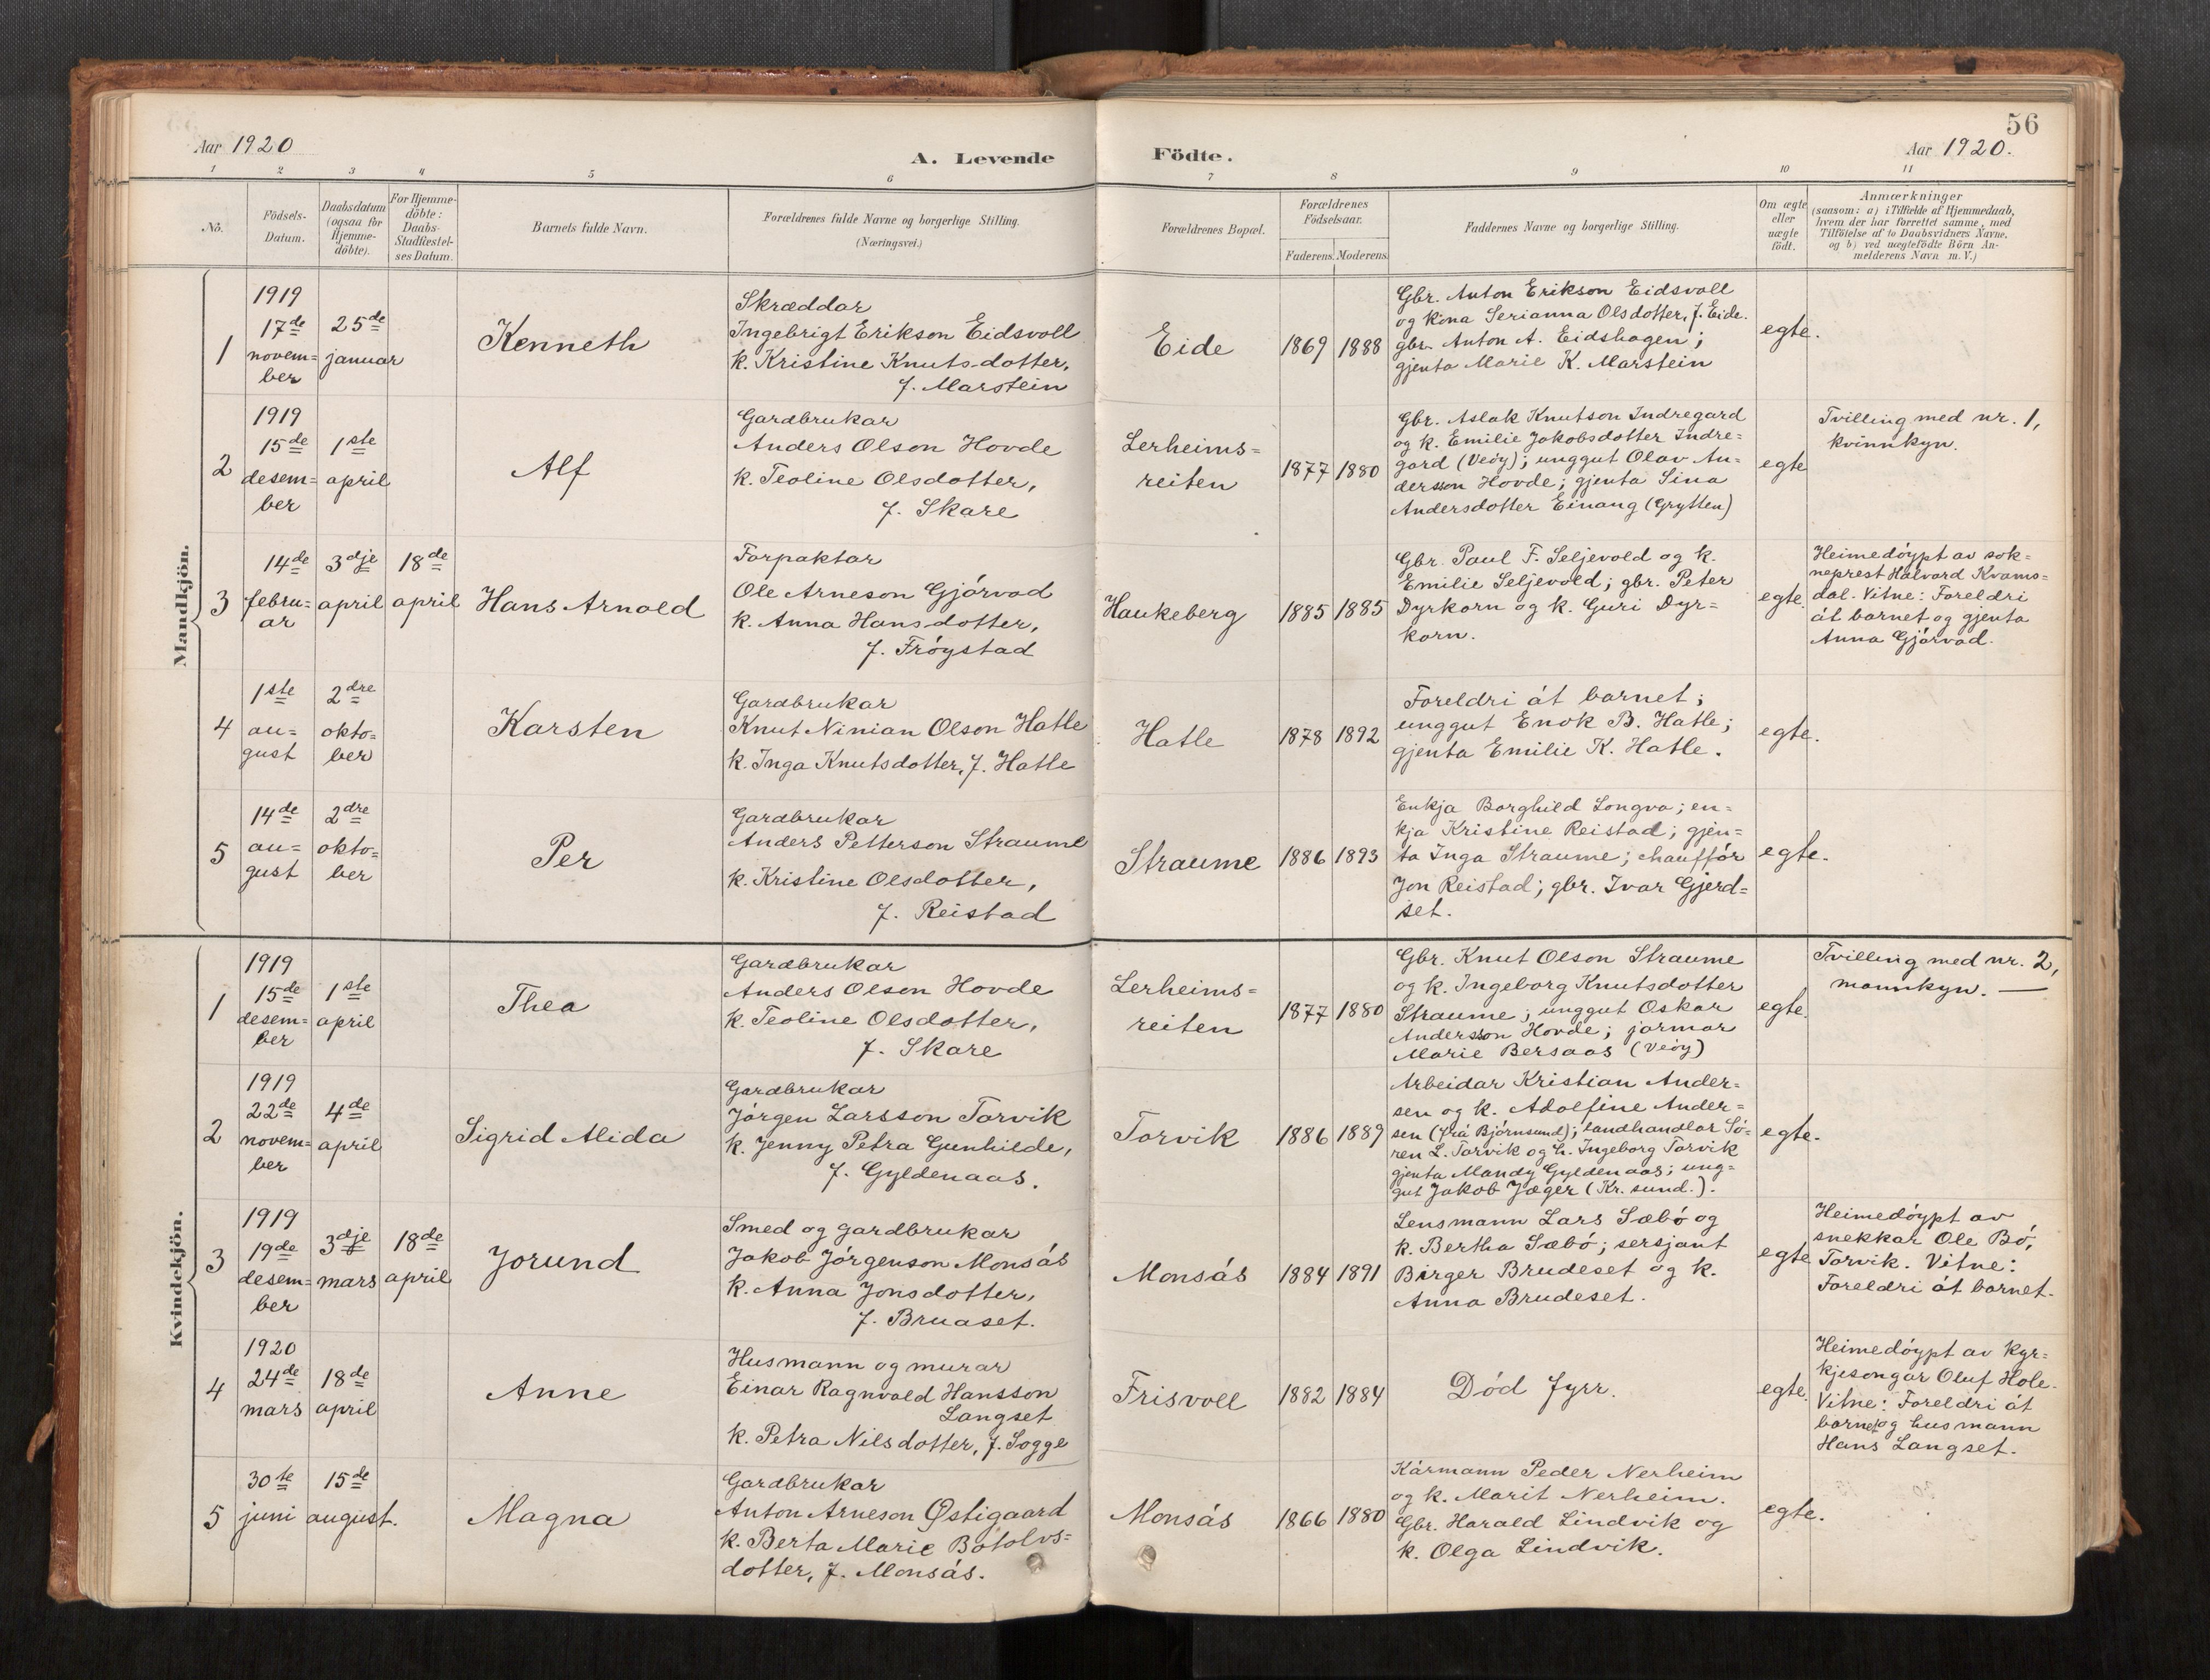 56
Aar 1920
A. Levende
Födte.
Aar 1920.
1 2 3 4 5 6 7 8 9 10 11
No.
Födsels-
Datum.
Daabsdatum
(ogsaa for
Hjemme-
döbte).
For Hjemme-
döbte:
Daabs-
Stadfæstel-
ses Datum.
Barnets fulde Navn.
Forældrenes fulde Navne og borgerlige Stilling.
(Næringsvei.)
Forældrenes Bopæl.
Forældrenes
Födselsaar.
Faderens. Moderens.
Faddernes Navne og borgerlige Stilling.
Om ægte
eller
uægte
födt.
Anmærkninger
(saasom: a) i Tilfælde af Hjemmedaab,
hvem der har forrettet samme, med
Tilföielse af to Daabsvidners Navne,
og b) ved uægtefödte Börn An-
melderens Navn m. V.)
Mandkjön.
1
1919
17de
novem=
ber
25de
januar
Kenneth
Skræddar
Ingebrigt Erikson Eidsvoll
k. Kristine Knuts-dotter,
f. Marstein
Eide
1869 1888
Gbr. Anton Erikson Eidsvoll
og kona Serianna Olsdotter, f. Eide.
gbr. Anton A. Eidshagen;
gjenta Marie K. Marstein
egte.
2
1919
15de
desem=
ber
1ste
april
Alf
Gardbrukar
Anders Olson Hovde
k. Teoline Olsdotter,
f. Skare
Lerheims=
reiten
1877 1880
Gbr. Aslak Knutson Indregard
og k. Emilie Jakobsdotter Indre=
gard (Veöy); unggut Olav An=
dersson Hovde; gjenta Sina
Andersdotter Einang (Grytten)
egte
Tvilling med nr. 1,
kvinnkyn.
3
14de
febru=
ar
3dje
april
18de
april
Hans Arnold
Forpaktar
Ole Arneson Gjórvad
k. Anna Hansdotter,
f. Fróystad
Haukeberg
1885 1885
Gbr. Paul F. Seljevold og k.
Emilie Seljevold; gbr. Peter
Dyrkorn og k. Guri Dyr=
korn.
egte.
Heimedóypt av sok=
neprest Halvard Kvams=
dal. Vitne: Foreldri
át barnet og gjenta
Anna Gjórvad.
4
1ste
au=
gust
2dre
okto=
ber
Karsten
Gardbrukar
Knut Ninian Olson Hatle
k. Inga Knutsdotter, f. Hatle
Hatle
1878 1892
Foreldri át barnet;
unggut Enok B. Hatle;
gjenta Emilie K. Hatle.
egte.
5
14de
au=
gust
2dre
okto=
ber
Per
Gardbrukar
Anders Petterson Straume
k. Kristine Olsdotter,
f. Reistad
Straume
1886 1893
Enkja Borghild Longva; en=
kja Kristine Reistad; gjen=
ta Inga Straume; chauffór
Jon Reistad; gbr. Ivar Gjerd=
set.
egte.
Kvindekjön.
1
1919
15de
desem=
ber
1ste
april
Thea
Gardbrukar
Anders Olson Hovde
k. Teoline Olsdotter,
f. Skare
Lerheims=
reiten
1877 1880
Gbr. Knut Olson Straume
og k. Ingeborg Knutsdotter
Straume; unggut Oskar
Andersson Hovde; jarmor
Marie Bersaas (Veöy)
egte.
Tvilling med nr. 2,
mannkyn. —
2
1919
22de
novem=
ber
4de
april
Sigrid Alida
Gardbrukar
Jórgen Larsson Torvik
k. Jenny Petra Gunhilde,
f. Gyldenaas.
Torvik
1886 1889
Arbeidar Kristian Ander=
sen og k. Adolfine Ander=
sen (frá Bjórnsund); landhandlar Só=
ren L. Torvik og k. Ingeborg Torvik
gjenta Mandy Gyldenaas; ung=
gut Jakob Jæger (Kr. sund.).
egte.
3
1919
19de
desem=
ber
3dje
mars
18de
april
Jorund
Smed og gardbrukar
Jakob Jórgenson Monsás
k. Anna Jonsdotter,
f. Bruaset.
Monsás
1884 1891
Lensmann Lars Sæbó og
k. Bertha Sæbó; sersjant
Birger Brudeset og k.
Anna Brudeset.
egte
Heimedóypt av
snekkar Ole Bó,
Torvik. Vitne:
Foreldri át barnet.
4
1920
24de
mars
18de
april
Anne
Husmann og murar
Einar Ragnvald Hansson
Langset
k. Petra Nilsdotter, f. Sogge
Frisvoll
1882 1884
Dód fyrr.
egte.
Heimedóypt av kyr=
kjesongar Oluf Hole.
Vitne: Foreldri át
barnet og husmann
Hans Langset.
5
30te
juni
15de
august.
Magna
Gardbrukar
Anton Arneson Østigaard
k. Berta Marie Bótolvs=
dotter, f. Monsás.
Monsás
1866 1880
Kármann Peder Nerheim
og k. Marit Nerheim.
Gbr. Harald Lindvik og
k. Olga Lindvik.
egte.